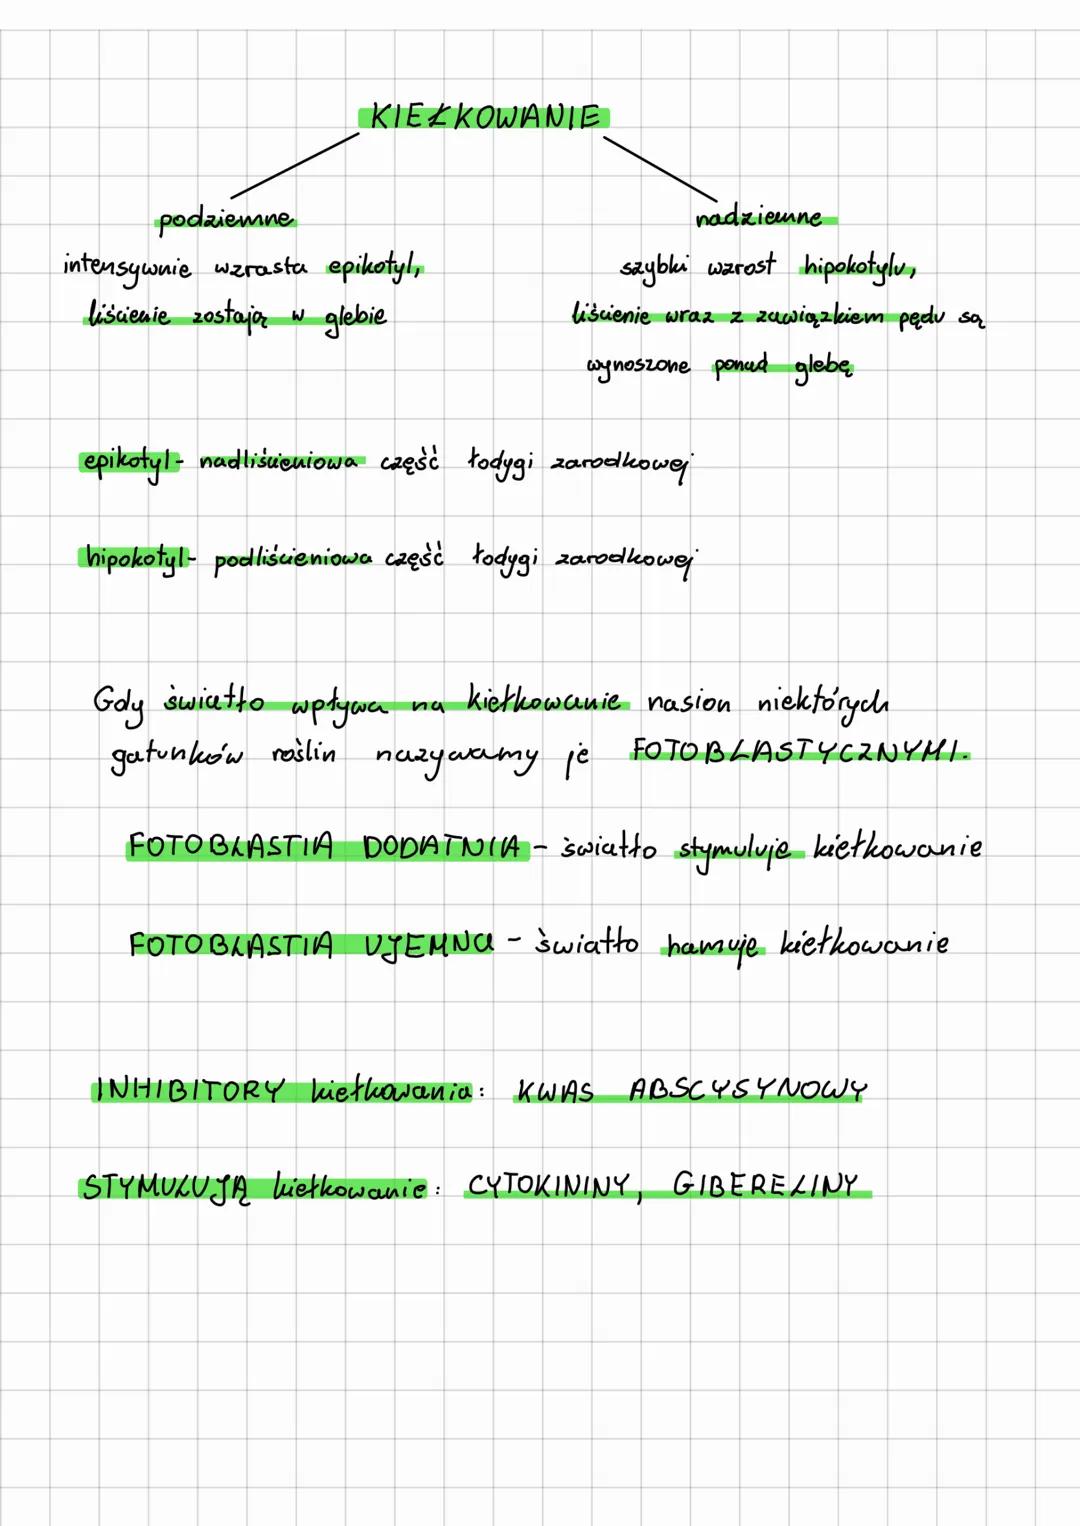 KIEŁKOWANIE
podziemne
intensywnie wzrasta epikotyl,
liścienie zostają w glebie
nadziemne
szybki wzrost hipokotylu,
liścienie wraz z zawiązkiem pędu są
wynoszone ponad glebę
epikotyl- nadliścieniowa część łodygi zarodkowej
hipokotyl- podliścieniowa część łodygi zarodkowej
Gdy światło wpływa na kiełkowanie nasion niektórych
gatunków roślin nazywamy je FOTOBLASTYCZNYMI.
FOTOBLASTIA DODATNIA - światło stymuluje kiełkowanie
FOTOBLASTIA UJEMNA - światło hamuje kiełkowanie
INHIBITORY kiełkowania: KWAS ABSCYSYNOWY
STYMULUJĄ kiełkowanie: CYTOKININY, GIBERELINY